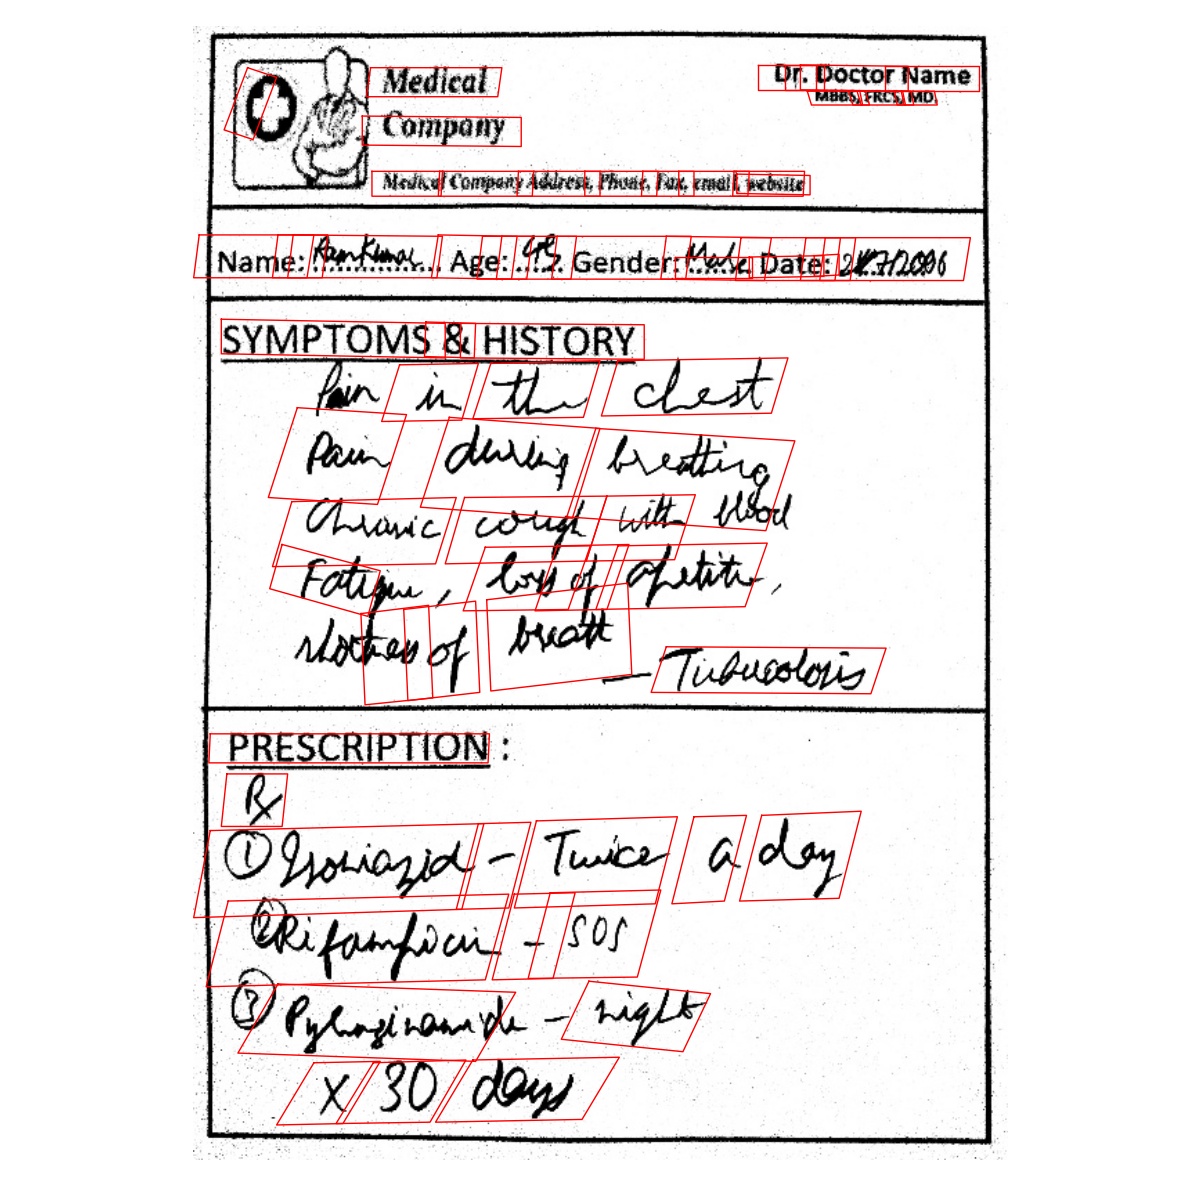 Medical
Company
Dr. Doctor Name
MBBS, FRCS, MD
Medical Company Address, Phone, Fax, email, website
Name: Ram Kumar Age: Gender: Male Date:
SYMPTOMS & HISTORY
Pain in the chest
Pain during breathing
Chronic cough with blood
Fatigue, loss of apetite,
shortness of breath
— Tuberculosis
PRESCRIPTION :
Rx
① Isoniazid - Twice a day
② Rifampicin - SOS
③ Pyhazinamide - night
x 30 days